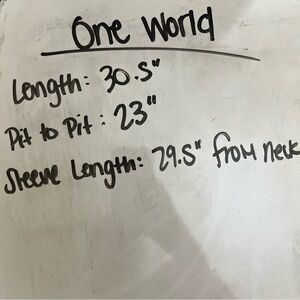 One World
Length: 30.5"
Pit to Pit: 23"
Sleeve Length: 29.5" from neck